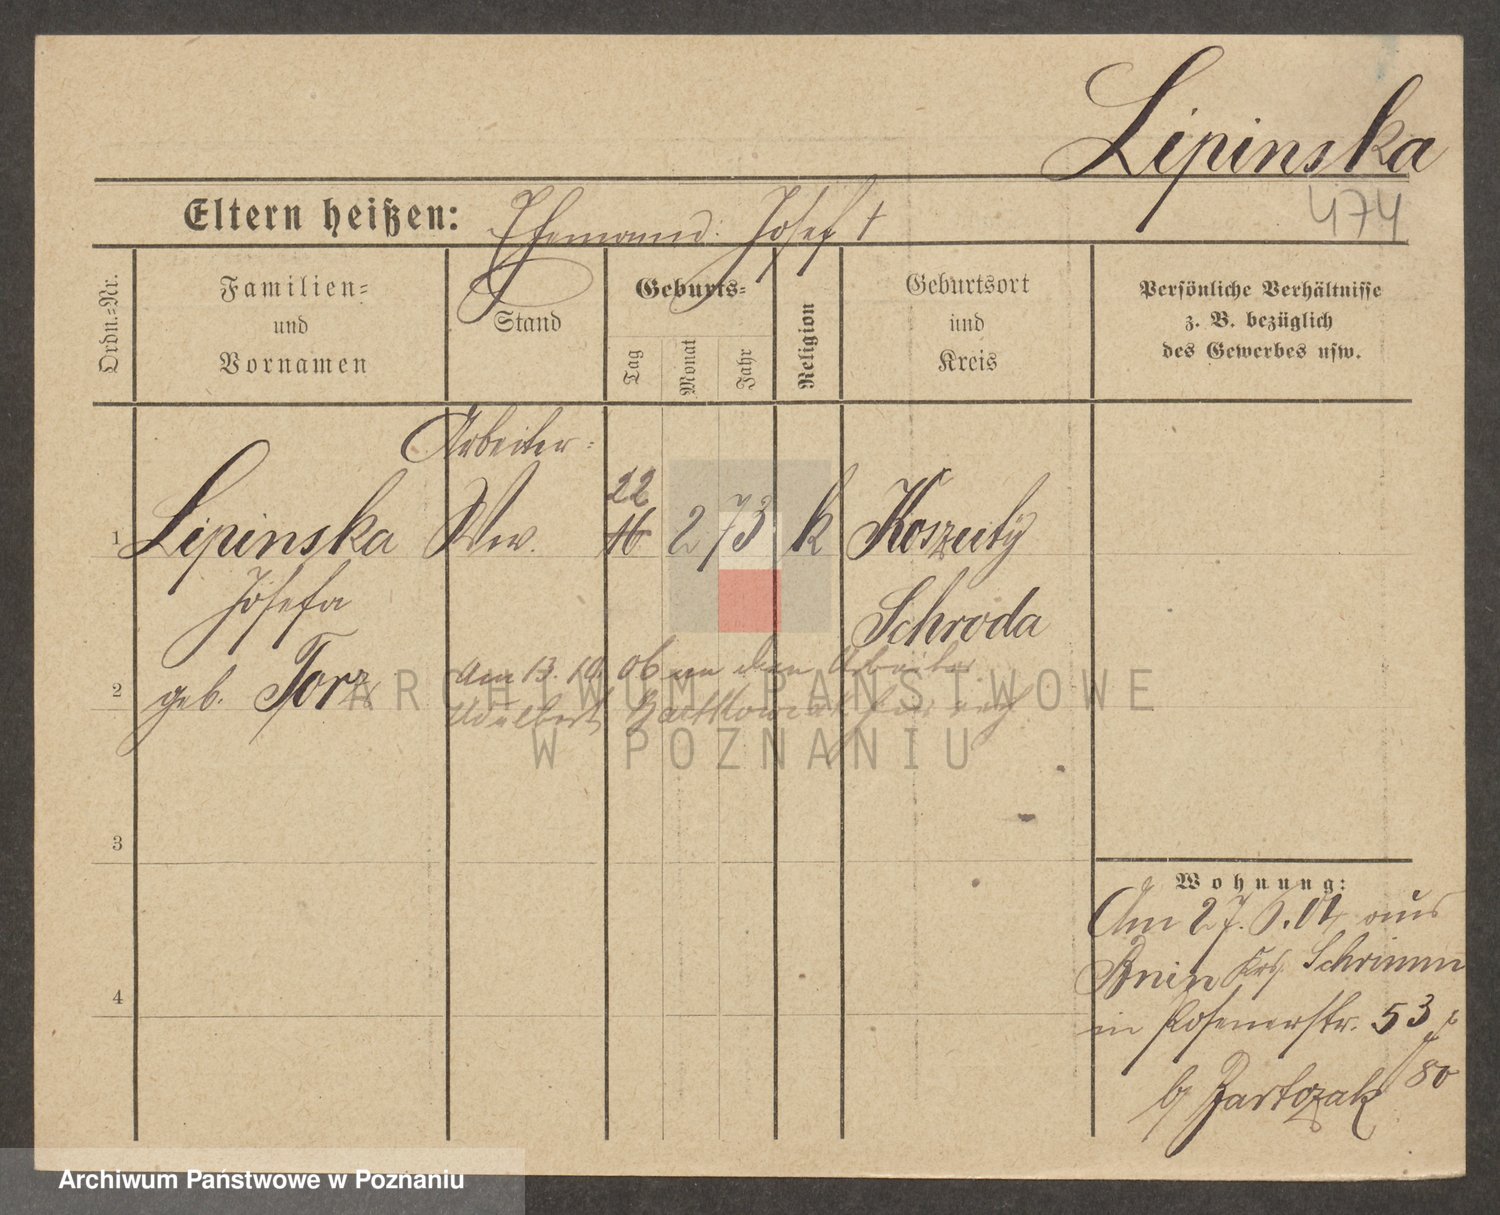 Lipinska
474
Eltern heißen: Ehemann: Josef †
Ordn.=Nr.
Familien=
und
Vornamen
Stand
Geburts=
Tag
Monat
Jahr
Religion
Geburtsort
und
Kreis
Persönliche Verhältnisse
z. B. bezüglich
des Gewerbes usw.
Arbeiter=
1 Lipinska Ww. 22 16 2 73 k Koszuty
Josefa Schroda
geb. Torz
2 Am 13. 10. 06 an den Arbeiter
Adalbert
3
4
Wohnung:
Am 27. 01 aus
Bnin Krs. Schrimm
in Posenerstr. 53
b/ Bartczak 80
ARCHIWUM PAŃSTWOWE
W POZNANIU
Archiwum Państwowe w Poznaniu